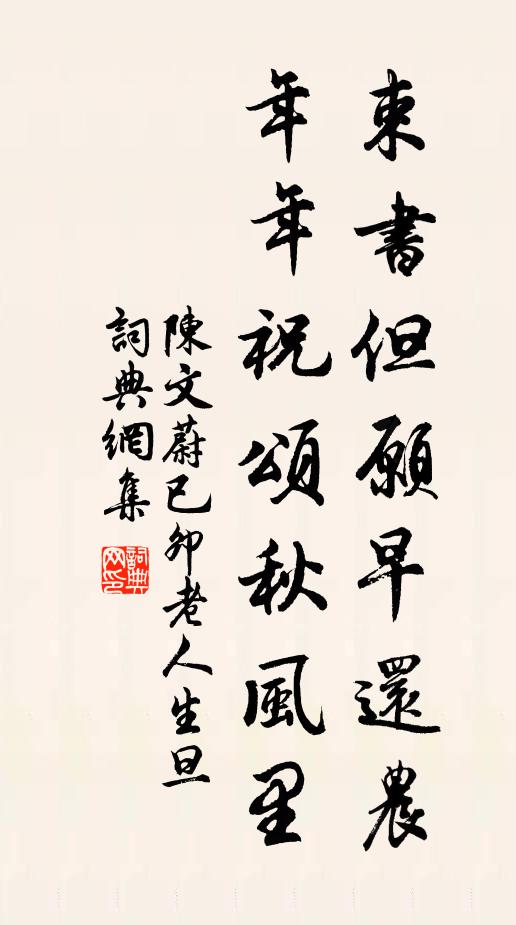 束書但願早還農
年年祝頌秋風里
陳文蔚已卯老人生旦
詞典網集
詞典网印